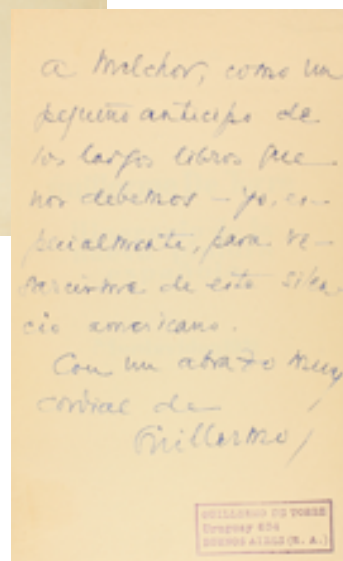 a Melchor, como un
pequeño anticipo de
los largos libros que
nos debemos – yo, es-
pecialmente, para re-
sarcirme de este silen-
cio americano.
Con un abrazo muy
cordial de
Guillermo
GUILLERMO DE TORRE
Uruguay 694
BUENOS AIRES (R. A.)